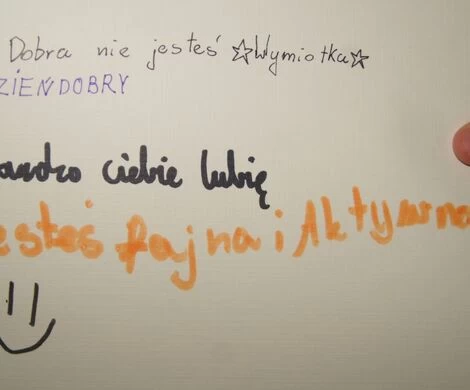 Dobra nie jesteś ☆Wymiotka☆
ZIEŃDOBRY
ardzo ciebie lubię
esteś fajna i Aktywna